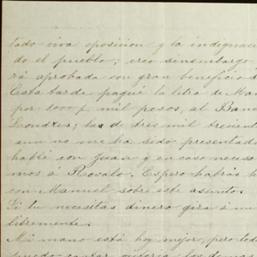 tado una oposicion y la indignaci
do el pueblo; creo sinembargo
rá aprobada con gran beneficio d
Esta tarde pagué la letra de Man
por 1000 £ mil pesos, al Banc
Londres; las de tres mil trescient
aun no me ha sido presentad
hablé con Juan y en caso neces
mos á Reovalo. Espero habrás h
con Manuel sobre este asunto.
Si tu necesitas dinero gira á mi
libremente.
Mi mano está hoy mejor, pero tod